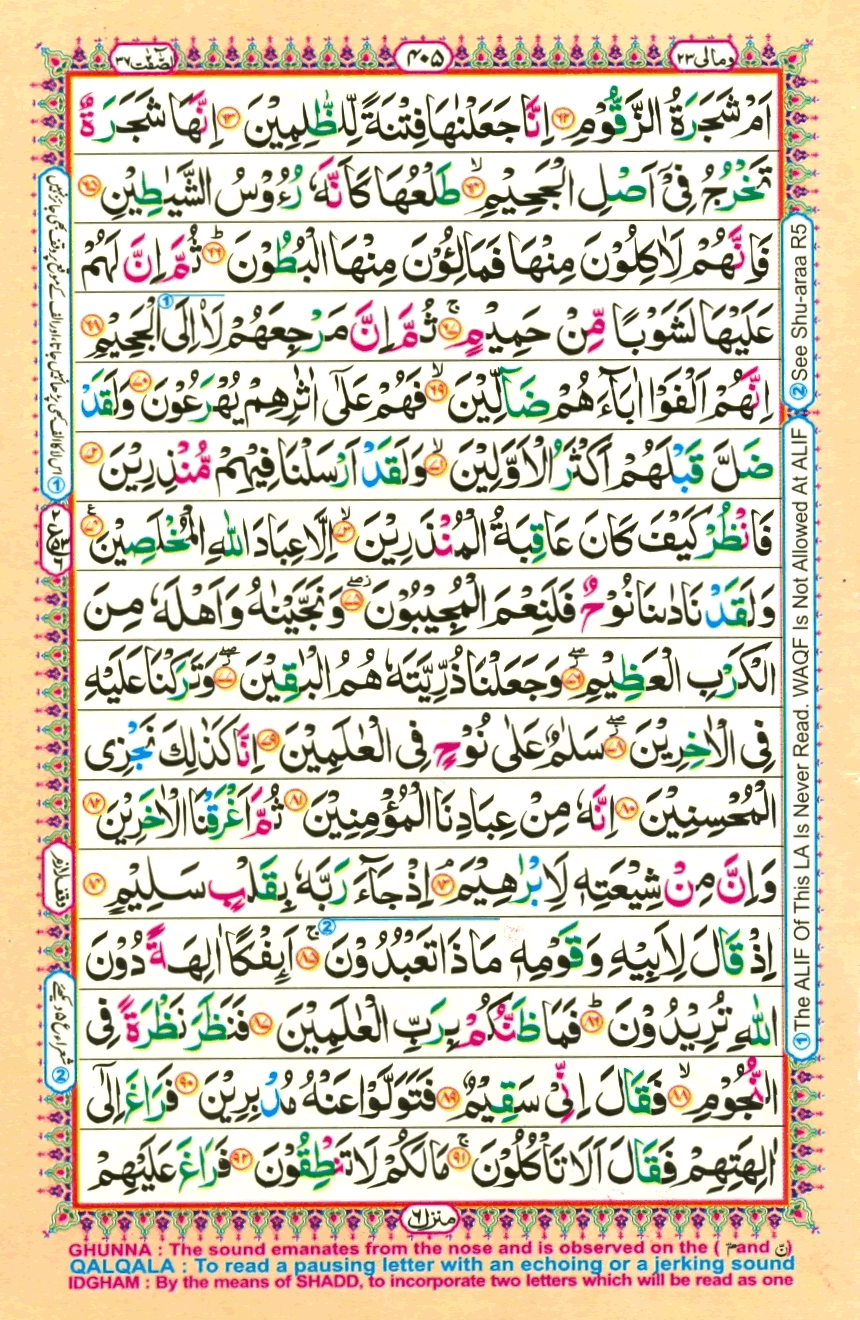 وما لی ۲۳
۴۰۵
الصّٰفّٰت ۳۷
اَمْ شَجَرَةُ الزَّقُّوْمِ ۶۲ اِنَّا جَعَلْنٰهَا فِتْنَةً لِّلظّٰلِمِيْنَ ۶۳ اِنَّهَا شَجَرَةٌ
تَخْرُجُ فِیْۤ اَصْلِ الْجَحِيْمِۙ ۶۴ طَلْعُهَا كَاَنَّهٗ رُءُوْسُ الشَّيٰطِيْنِ ۶۵
فَاِنَّهُمْ لَاٰكِلُوْنَ مِنْهَا فَمَالِـُٔوْنَ مِنْهَا الْبُطُوْنَؕ ۶۶ ثُمَّ اِنَّ لَهُمْ
عَلَيْهَا لَشَوْبًا مِّنْ حَمِيْمٍۚ ۶۷ ثُمَّ اِنَّ مَرْجِعَهُمْ لَا۟اِلَى الْجَحِيْمِ ۶۸
اِنَّهُمْ اَلْفَوْا اٰبَآءَهُمْ ضَآلِّيْنَۙ ۶۹ فَهُمْ عَلٰۤى اٰثٰرِهِمْ يُهْرَعُوْنَ ۷۰ وَلَقَدْ
ضَلَّ قَبْلَهُمْ اَكْثَرُ الْاَوَّلِيْنَۙ ۷۱ وَلَقَدْ اَرْسَلْنَا فِيْهِمْ مُّنْذِرِيْنَ ۷۲
فَانْظُرْ كَيْفَ كَانَ عَاقِبَةُ الْمُنْذَرِيْنَۙ ۷۳ اِلَّا عِبَادَ اللّٰهِ الْمُخْلَصِيْنَ ۷۴
وَلَقَدْ نَادٰىنَا نُوْحٌ فَلَنِعْمَ الْمُجِيْبُوْنَ ۷۵ وَنَجَّيْنٰهُ وَاَهْلَهٗ مِنَ
الْكَرْبِ الْعَظِيْمِ ۷۶ وَجَعَلْنَا ذُرِّيَّتَهٗ هُمُ الْبٰقِيْنَ ۷۷ وَتَرَكْنَا عَلَيْهِ
فِی الْاٰخِرِيْنَ ۷۸ سَلٰمٌ عَلٰى نُوْحٍ فِی الْعٰلَمِيْنَ ۷۹ اِنَّا كَذٰلِكَ نَجْزِی
الْمُحْسِنِيْنَ ۸۰ اِنَّهٗ مِنْ عِبَادِنَا الْمُؤْمِنِيْنَ ۸۱ ثُمَّ اَغْرَقْنَا الْاٰخَرِيْنَ ۸۲
وَاِنَّ مِنْ شِيْعَتِهٖ لَاِبْرٰهِيْمَ ۘ ۸۳ اِذْ جَآءَ رَبَّهٗ بِقَلْبٍ سَلِيْمٍ ۸۴
اِذْ قَالَ لِاَبِيْهِ وَقَوْمِهٖ مَاذَا تَعْبُدُوْنَۚ ۸۵ اَئِفْكًا اٰلِهَةً دُوْنَ
اللّٰهِ تُرِيْدُوْنَؕ ۸۶ فَمَا ظَنُّكُمْ بِرَبِّ الْعٰلَمِيْنَ ۸۷ فَنَظَرَ نَظْرَةً فِی
النُّجُوْمِۙ ۸۸ فَقَالَ اِنِّیْ سَقِيْمٌ ۸۹ فَتَوَلَّوْا عَنْهُ مُدْبِرِيْنَ ۹۰ فَرَاغَ اِلٰۤى
اٰلِهَتِهِمْ فَقَالَ اَلَا تَاْكُلُوْنَۚ ۹۱ مَا لَكُمْ لَا تَنْطِقُوْنَ ۹۲ فَرَاغَ عَلَيْهِمْ
منزل ۶
② See Shu-araa R5
① The ALIF Of This LA Is Never Read. WAQF Is Not Allowed At ALIF
وقف لازم
GHUNNA : The sound emanates from the nose and is observed on the ( مّ and نّ)
QALQALA : To read a pausing letter with an echoing or a jerking sound
IDGHAM : By the means of SHADD, to incorporate two letters which will be read as one